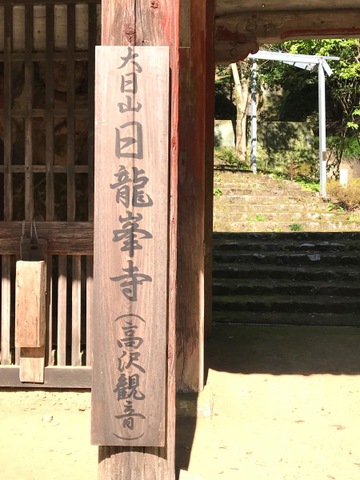 大日山日龍峯寺(高沢観音)